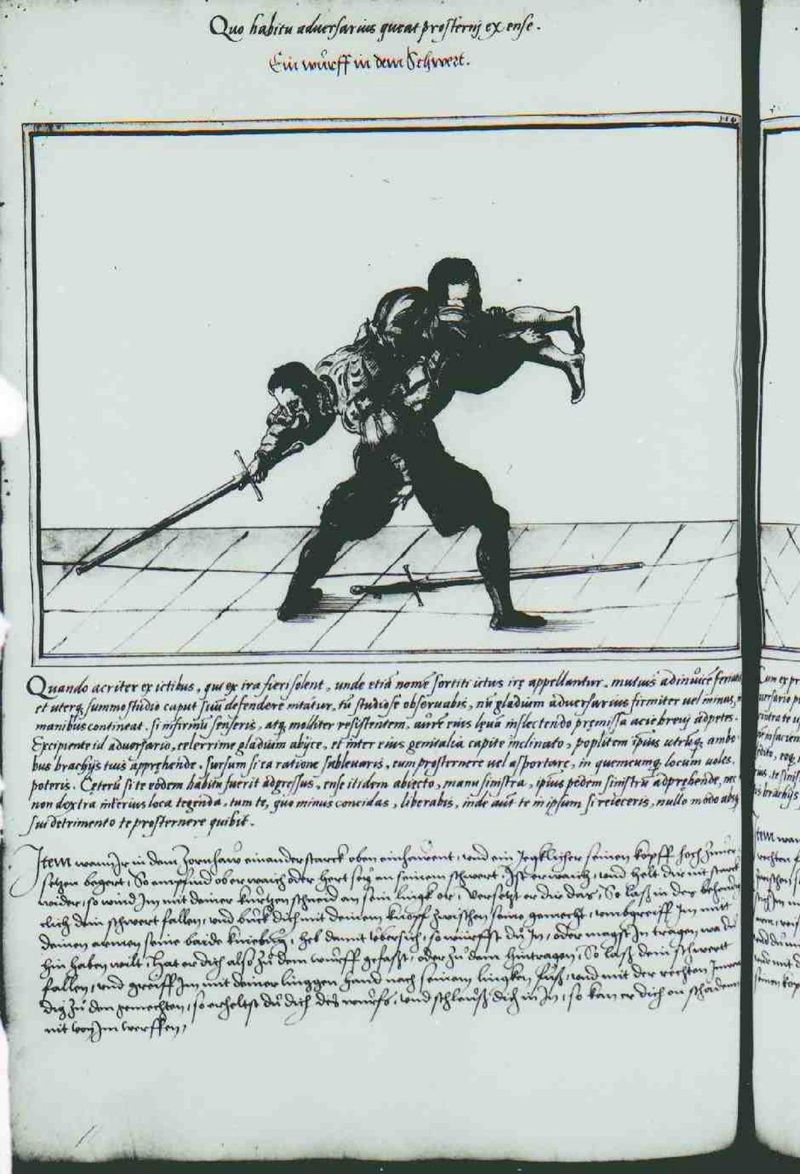 Quo habitu adversarius queat prosterni ex ense.
Ein wurff in dem Schwert.
Quando acriter ex ictibus, qui ex ira fieri solent, unde etiã nomẽ sortiti ictus irę appellantur, mutuis adinvicẽ
et uterq; summo studio caput suũ defendere nitatur, tũ studiose observabis, nũ gladium adversarius firmiter vel minus,
manibus contineat, si infirmũ senseris, atq; molliter resistentem, aurẽ eius levã inflectendo premissa acie brevi adpetes.
Excipiente id adversario, celerrime gladium abijce, et inter eius genitalia capite inclinato, poplitem ipsius utrũq; ambo
bus brachijs tuis apprehende, sursum si ea ratione sublevaris, eum prosternere vel asportare, in quemcumq; locum voles,
poteris. Ceterũ si te eodem habitu fuerit adgressus, ense itidem abiecto, manu sinistra, ipsius pedem sinistrũ adprehende,
non dextra interius loca tegenda, tum te, quo minus concidas, liberabis, inde aut te in ipsum si reieceris, nullo modo absq
sui detrimento te prosternere quibit.
Item wann Ir in dem Zornhaw einander starck oben einhawent, und ein yegklicher seinen kopff hoch zuver
setzen begert, So empfind ob er waich oder hert sey an seinem schwert, Ist er waich, und helt dir nit starck
wider, so wind Im mit deiner kurtzen schneid an sein lingk or, versetzt er dir das, So lass in der behend
clich dein schwert fallen, und buck dich mit deinem kopff zwischen seine gemecht, umbgreiff Im mit
deinen armen seine baide kniebug, heb damit ubersich, so wurffst du In, oder magst In tragen, wa du
hin haben wilt, hat er dich also zu dem wurff gefasst, oder zu dem hintragen, So lass dein schwert
fallen, und greiff Im mit deiner linggen hand nach seinem lingken fuss, und mit der rechten
dig zu den gemechten, so erheltst du dich des wurffs, und schleuss dich in In, so kan er dich on schaden
nit von Im werffen,